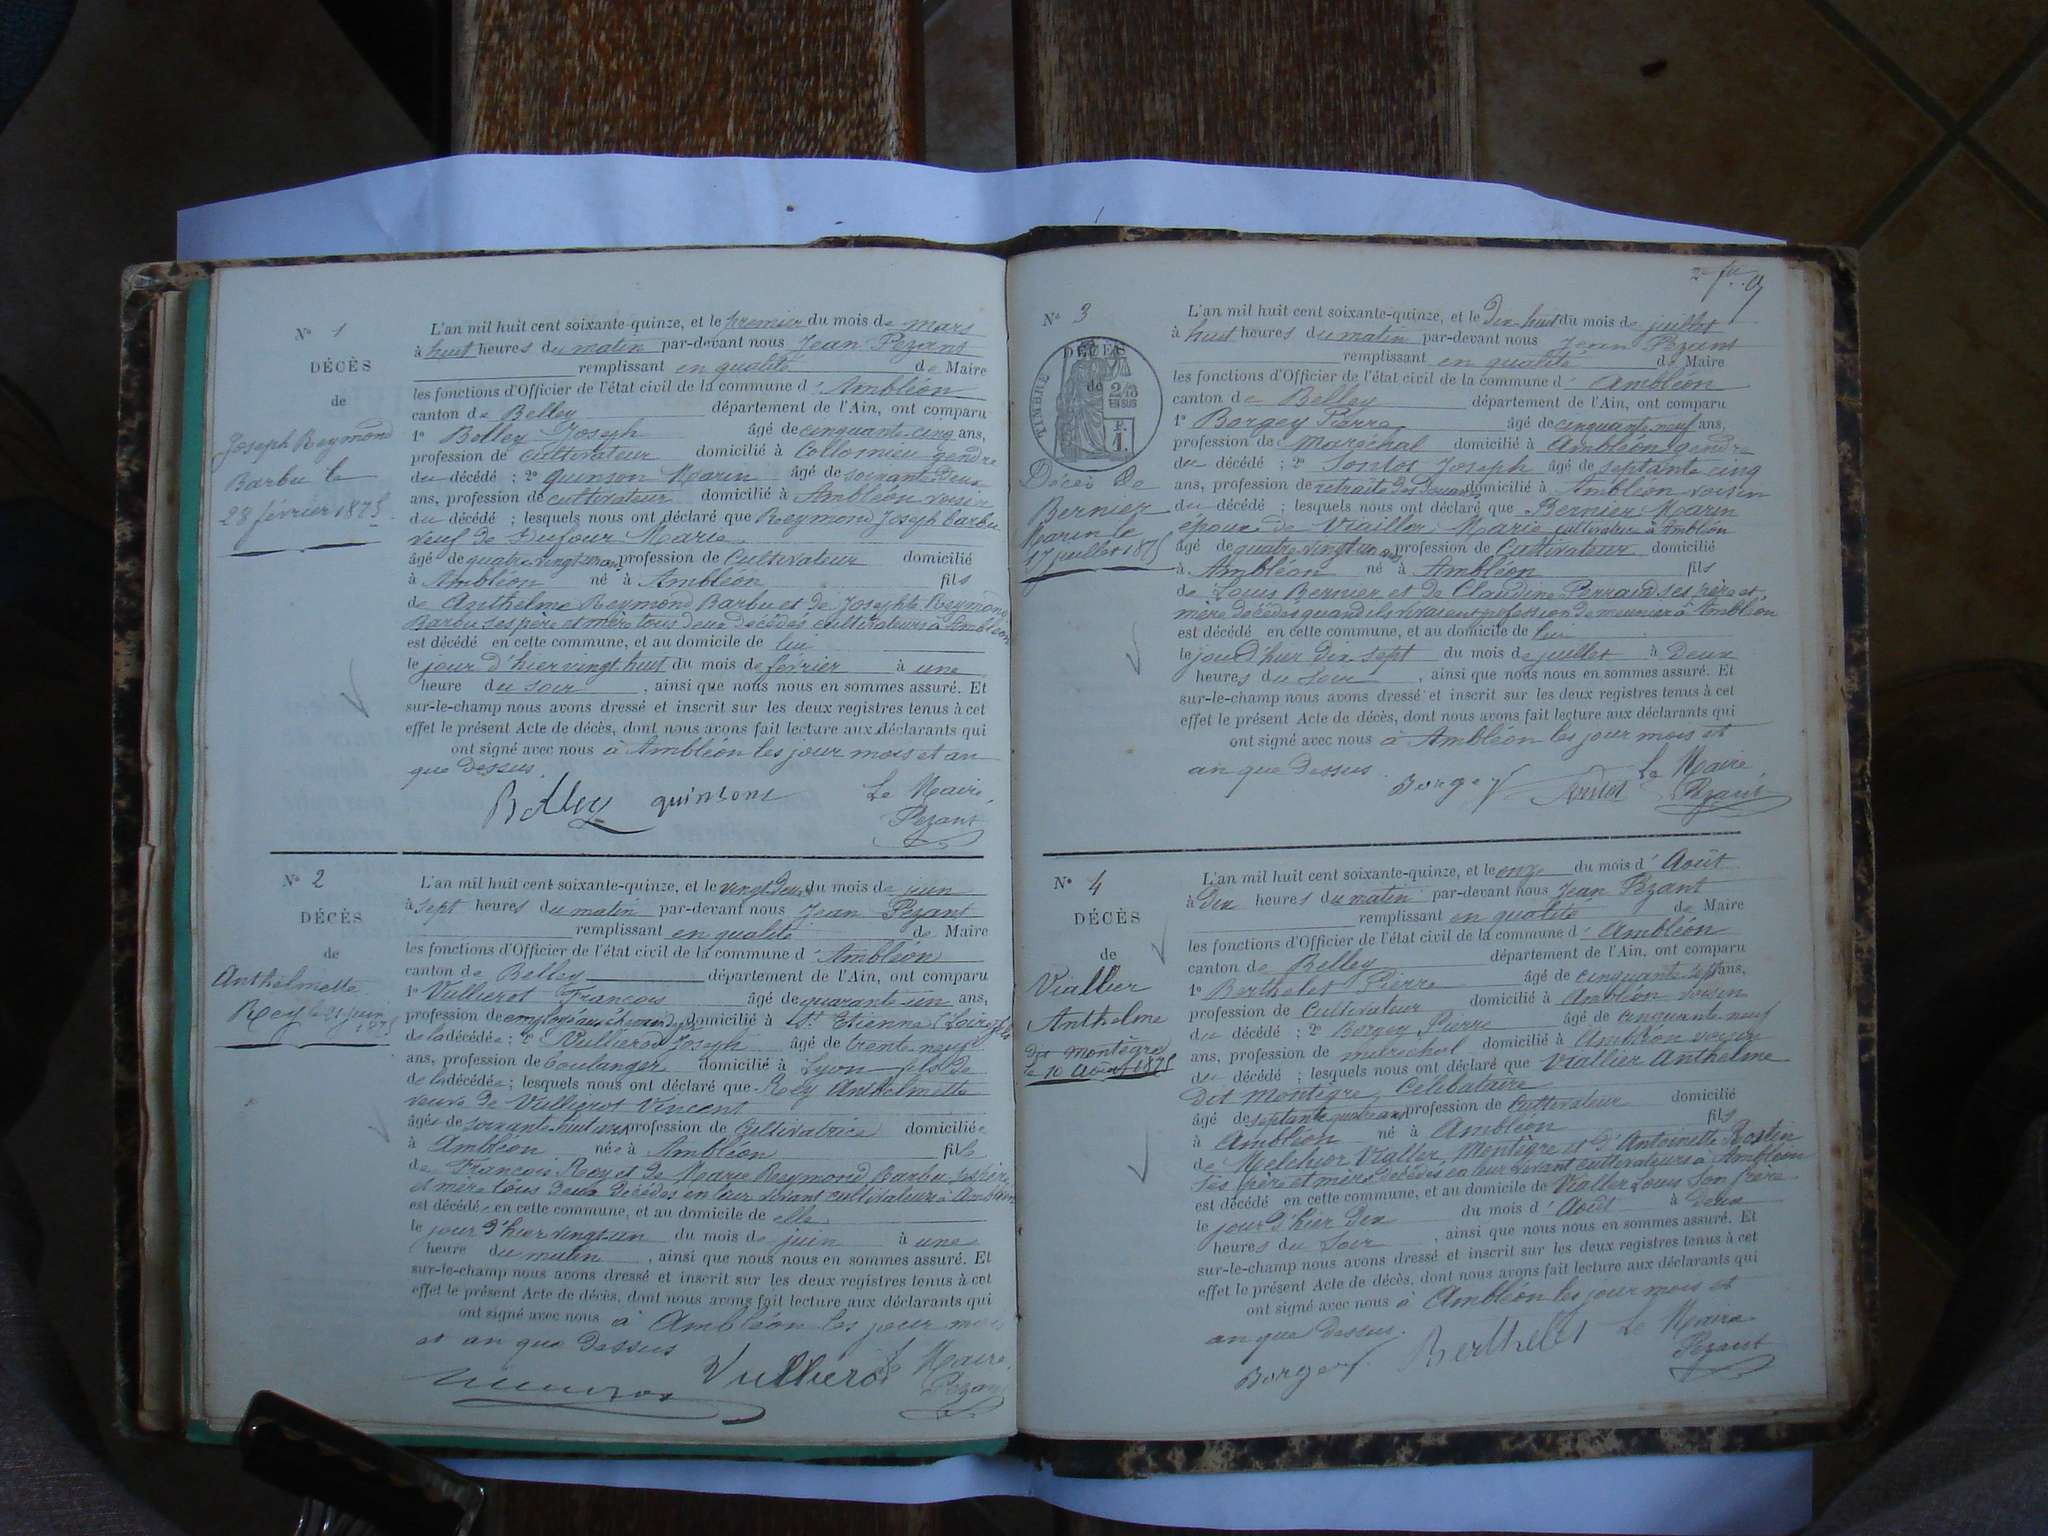 N° 1
DÉCÈS
de
Joseph Reymond
Barbu le
28 février 1875
L'an mil huit cent soixante-quinze, et le premier du mois de mars
à huit heures du matin par-devant nous Jean Pezant
remplissant en qualité de Maire
les fonctions d'Officier de l'état civil de la commune d'Ambléon
canton de Belley département de l'Ain, ont comparu
1° Bolley Joseph âgé de cinquante-cinq ans,
profession de cultivateur domicilié à Collomieu gendre
du décédé ; 2° Quinson Marin âgé de soixante-deux
ans, profession de cultivateur domicilié à Ambléon voisin
du décédé ; lesquels nous ont déclaré que Reymond Joseph barbu
veuf de Dufour Marie
âgé de quatre vingt un ans profession de Cultivateur domicilié
à Ambléon né à Ambléon fils
de Anthelme Reymond Barbu et de Josephte Reymond
Barbu ses père et mère tous deux décédés cultivateurs à Ambléon
est décédé en cette commune, et au domicile de lui
le jour d'hier vingt huit du mois de février à une
heure du soir, ainsi que nous nous en sommes assuré. Et
sur-le-champ nous avons dressé et inscrit sur les deux registres tenus à cet
effet le présent Acte de décès, dont nous avons fait lecture aux déclarants qui
ont signé avec nous à Ambléon les jour mois et an
que dessus.
Bolley quinsont Le Maire
Pezant
N° 2
DÉCÈS
de
Anthelmette
Rey le 21 juin
1875
L'an mil huit cent soixante-quinze, et le vingt deux du mois de juin
à sept heures du matin par-devant nous Jean Pezant
remplissant en qualité de Maire
les fonctions d'Officier de l'état civil de la commune d'Ambléon
canton de Belley département de l'Ain, ont comparu
1° Vullierot François âgé de quarante un ans,
profession de employé aux chemin domicilié à St Etienne (Loire) fils
de la décédée ; 2° Vullierot Joseph âgé de trente neuf
ans, profession de boulanger domicilié à Lyon fils de
de la décédée ; lesquels nous ont déclaré que Rey Anthelmette
veuve de Vullierot Vincent
âgée de soixante-huit ans profession de Cultivatrice domiciliée
à Ambléon née à Ambléon fille
de François Rey et de Marie Reymond Barbu ses père
et mère tous deux décédés en leur vivant cultivateurs à Ambléon
est décédée en cette commune, et au domicile de elle
le jour d'hier vingt-un du mois de juin à une
heure du matin, ainsi que nous nous en sommes assuré. Et
sur-le-champ nous avons dressé et inscrit sur les deux registres tenus à cet
effet le présent Acte de décès, dont nous avons fait lecture aux déclarants qui
ont signé avec nous à Ambléon les jour mois
et an que dessus
Vullierot Le Maire
Pezant
N° 3
TIMBRE
DÉCÈS
de
2/10
EN SUS
F.
1.
Décès de
Bernier
Marin le
17 juillet 1875
L'an mil huit cent soixante-quinze, et le dix-huit du mois de juillet
à huit heures du matin par-devant nous Jean Pezant
remplissant en qualité de Maire
les fonctions d'Officier de l'état civil de la commune d'Ambléon
canton de Belley département de l'Ain, ont comparu
1° Borgey Pierre âgé de cinquante neuf ans,
profession de Maréchal domicilié à Ambléon gendre
du décédé ; 2° Joseph âgé de septante cinq
ans, profession de retraité des Douanes domicilié à Ambléon voisin
du décédé ; lesquels nous ont déclaré que Bernier Marin
époux de Viallier Marie cultivateur à Ambléon
âgé de quatre vingt un ans profession de Cultivateur domicilié
à Ambléon né à Ambléon fils
de Louis Bernier et de Claudine Perraud ses père et
mère décédés quand ils vivaient profession de meunier à Ambléon
est décédé en cette commune, et au domicile de lui
le jour d'hier dix sept du mois de juillet à deux
heures du soir, ainsi que nous nous en sommes assuré. Et
sur-le-champ nous avons dressé et inscrit sur les deux registres tenus à cet
effet le présent Acte de décès, dont nous avons fait lecture aux déclarants qui
ont signé avec nous à Ambléon les jour mois et
an que dessus.
Borgey Le Maire
Pezant
N° 4
DÉCÈS
de
Viallier
Anthelme
dit Montègre
le 10 Août 1875
L'an mil huit cent soixante-quinze, et le onze du mois d'Août
à dix heures du matin par-devant nous Jean Pezant
remplissant en qualité de Maire
les fonctions d'Officier de l'état civil de la commune d'Ambléon
canton de Belley département de l'Ain, ont comparu
1° Berthelet Pierre âgé de cinquante sept ans,
profession de Cultivateur domicilié à Ambléon voisin
du décédé ; 2° Borgey Pierre âgé de cinquante neuf
ans, profession de maréchal domicilié à Ambléon voisin
du décédé ; lesquels nous ont déclaré que Viallier Anthelme
dit Montègre Célibataire
âgé de septante quatre ans profession de Cultivateur domicilié
à Ambléon né à Ambléon fils
de Melchior Viallier Montègre et d'Antoinette Rostin
ses père et mère décédés en leur vivant cultivateurs à Ambléon
est décédé en cette commune, et au domicile de Viallier Louis son frère
le jour d'hier dix du mois d'Août à deux
heures du soir, ainsi que nous nous en sommes assuré. Et
sur-le-champ nous avons dressé et inscrit sur les deux registres tenus à cet
effet le présent Acte de décès, dont nous avons fait lecture aux déclarants qui
ont signé avec nous à Ambléon les jour mois et
an que dessus.
Borgey Berthelet Le Maire
Pezant